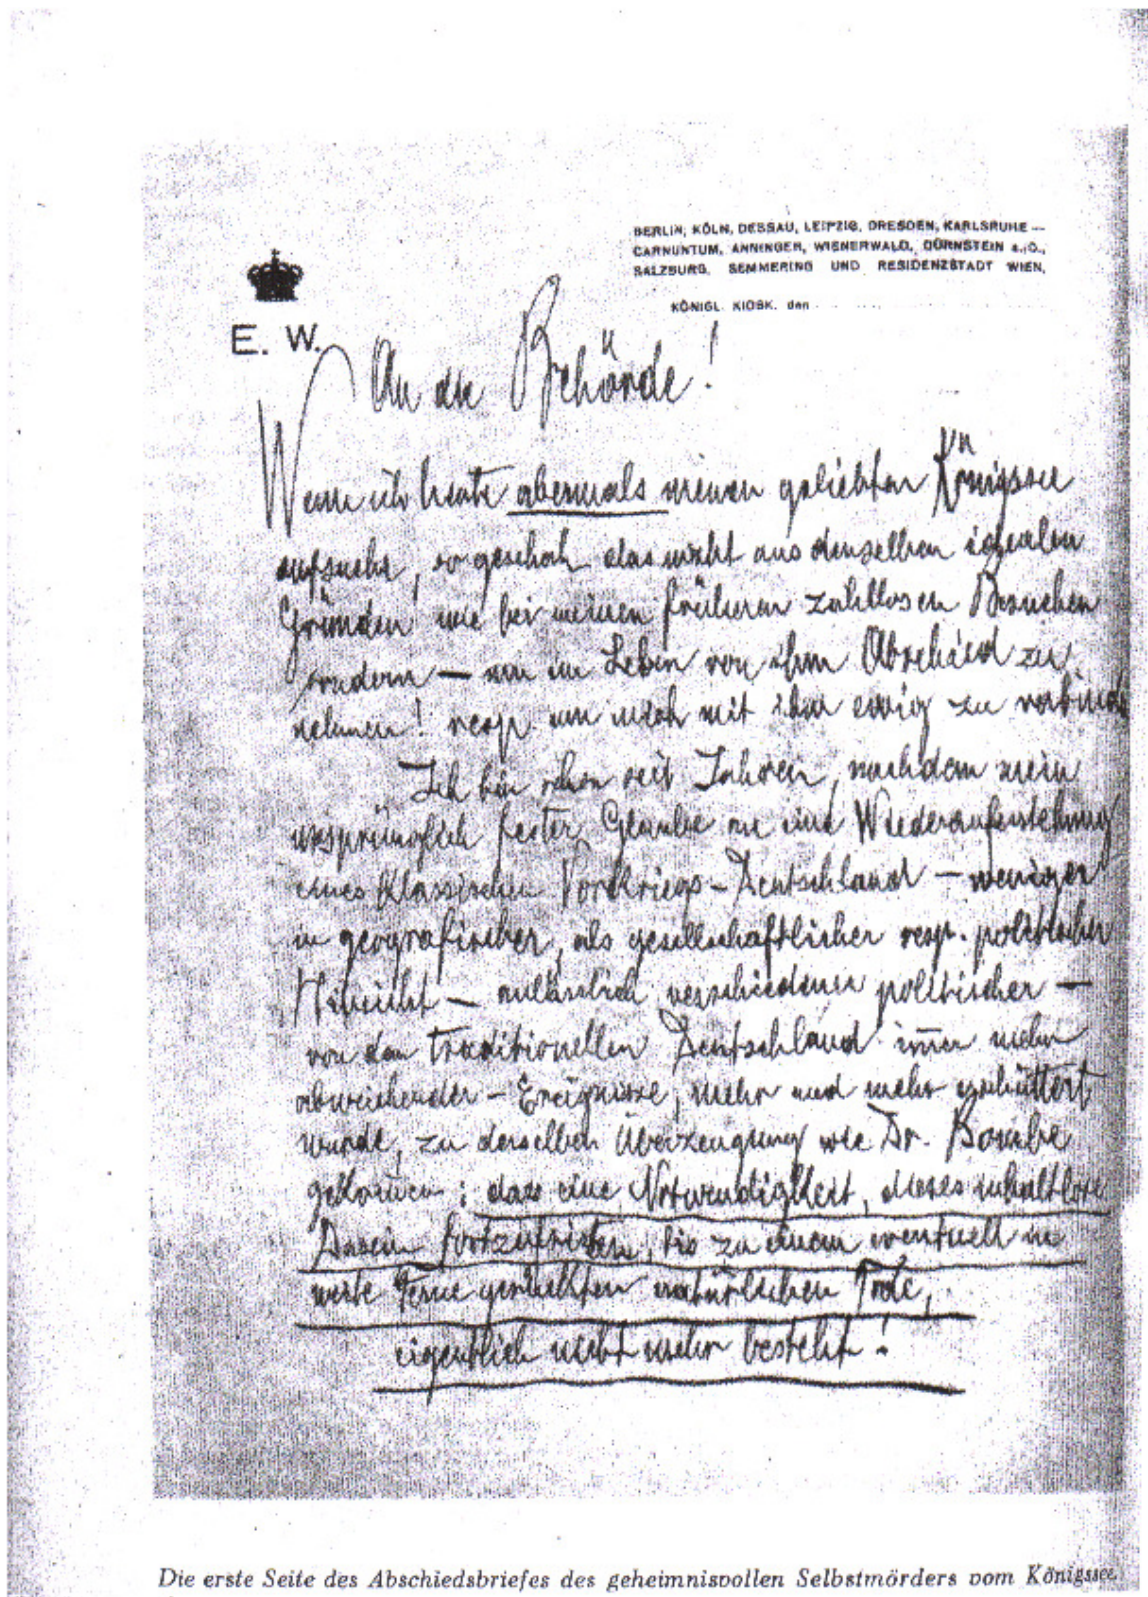 BERLIN, KÖLN, DESSAU, LEIPZIG, DRESDEN, KARLSRUHE —
CARNUNTUM, ANNINGER, WIENERWALD, DÜRNSTEIN a./D.,
SALZBURG, SEMMERING UND RESIDENZSTADT WIEN,
KÖNIGL. KIOSK, den
E. W.
An die Behörde!
Wenn ich heute abermals meinen geliebten Königssee
aufsuche, so geschah das nicht aus denselben idealen
Gründen wie bei meinen früheren zahllosen Besuchen
sondern — um im Leben von ihm Abschied zu
nehmen! resp. um mich mit ihm ewig zu verbinden
Ich bin schon seit Jahren, nachdem mein
ursprünglich fester Glaube an eine Wiederauferstehung
eines klassischen Vorkriegs-Deutschland — weniger
in geografischer, als gesellschaftlicher resp. politischer
Hinsicht — anlässlich verschiedener politischer —
von dem traditionellen Deutschland immer mehr
abweichender — Ereignisse, mehr und mehr erschüttert
wurde, zu derselben Überzeugung wie Dr.
gekommen: dass eine Notwendigkeit, dieses inhaltlose
Dasein fortzufristen, bis zu einem eventuell in
weite Ferne gerückten natürlichen Tode,
eigentlich nicht mehr besteht!
Die erste Seite des Abschiedsbriefes des geheimnisvollen Selbstmörders vom Königssee.